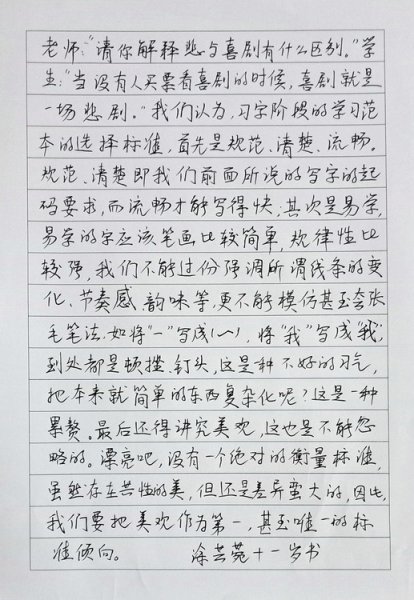 老师:“请你解释悲与喜剧有什么区别。”学
生:“当没有人买票看喜剧的时候,喜剧就是
一场悲剧。”我们认为,习字阶段的学习范
本的选择标准,首先是规范、清楚、流畅。
规范、清楚即我们前面所说的写字的起
码要求,而流畅才能写得快,其次是易学,
易学的字应该笔画比较简单,规律性比
较强,我们不能过份强调所谓线条的变
化、节奏感、韵味等,更不能模仿甚至夸张
毛笔法,如将“一”写成(一),将“我”写成“我”,
到处都是顿挫、钉头,这是种不好的习气,
把本来就简单的东西复杂化呢?这是一种
累赘。最后还得讲究美观,这也是不能忽
略的。漂亮吧,没有一个绝对的衡量标准,
虽然存在共性的美,但还是差异蛮大的,因此,
我们要把美观作为第一,甚至唯一的标
准倾向。 涂芸菀十一岁书